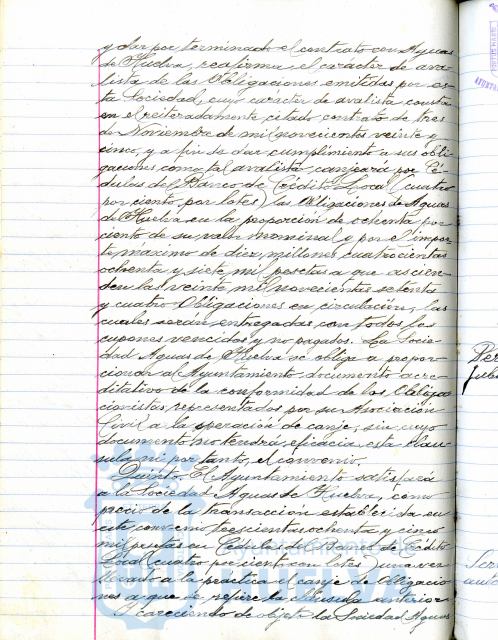 y dar por terminado el contrato con Aguas
de Huelva, reafirma el carácter de ava-
lista de las Obligaciones emitidas por es-
ta Sociedad, cuyo carácter de avalista consta
en el reiteradamente citado contrato de tres
de Noviembre de mil novecientos veinte y
cinco, y a fin de dar cumplimiento a sus obli-
gaciones como tal avalista canjeará por Cé-
dulas del Banco de Crédito Local (cuatro
por ciento, por lotes) las Obligaciones de Aguas
de Huelva en la proporción de ochenta por
ciento de su valor nominal o por el impor-
te máximo de diez millones cuatrocientas
ochenta y siete mil pesetas a que ascien-
den las veinte mil novecientas setenta
y cuatro Obligaciones en circulación, las
cuales serán entregadas con todos los
cupones vencidos y no pagados. La Socie-
dad Aguas de Huelva se obliga a propor-
cionar al Ayuntamiento documento acre-
ditativo de la conformidad de los Obliga-
cionistas, representados por su Asociación
Civil a la operación de canje, sin cuyo
documento no tendrá eficacia esta cláu-
sula ni por tanto, el convenio.
Quinto. El Ayuntamiento satisfará
a la Sociedad Aguas de Huelva, como
precio de la transacción establecida en
este convenio trescientas ochenta y cinco
mil pesetas en Cédulas del Banco de Crédito
Local (cuatro por ciento con lotes) una vez
llevado a la práctica el canje de Obligacio-
nes a que se refiere la cláusula anterior
Y careciendo de objeto la Sociedad Aguas